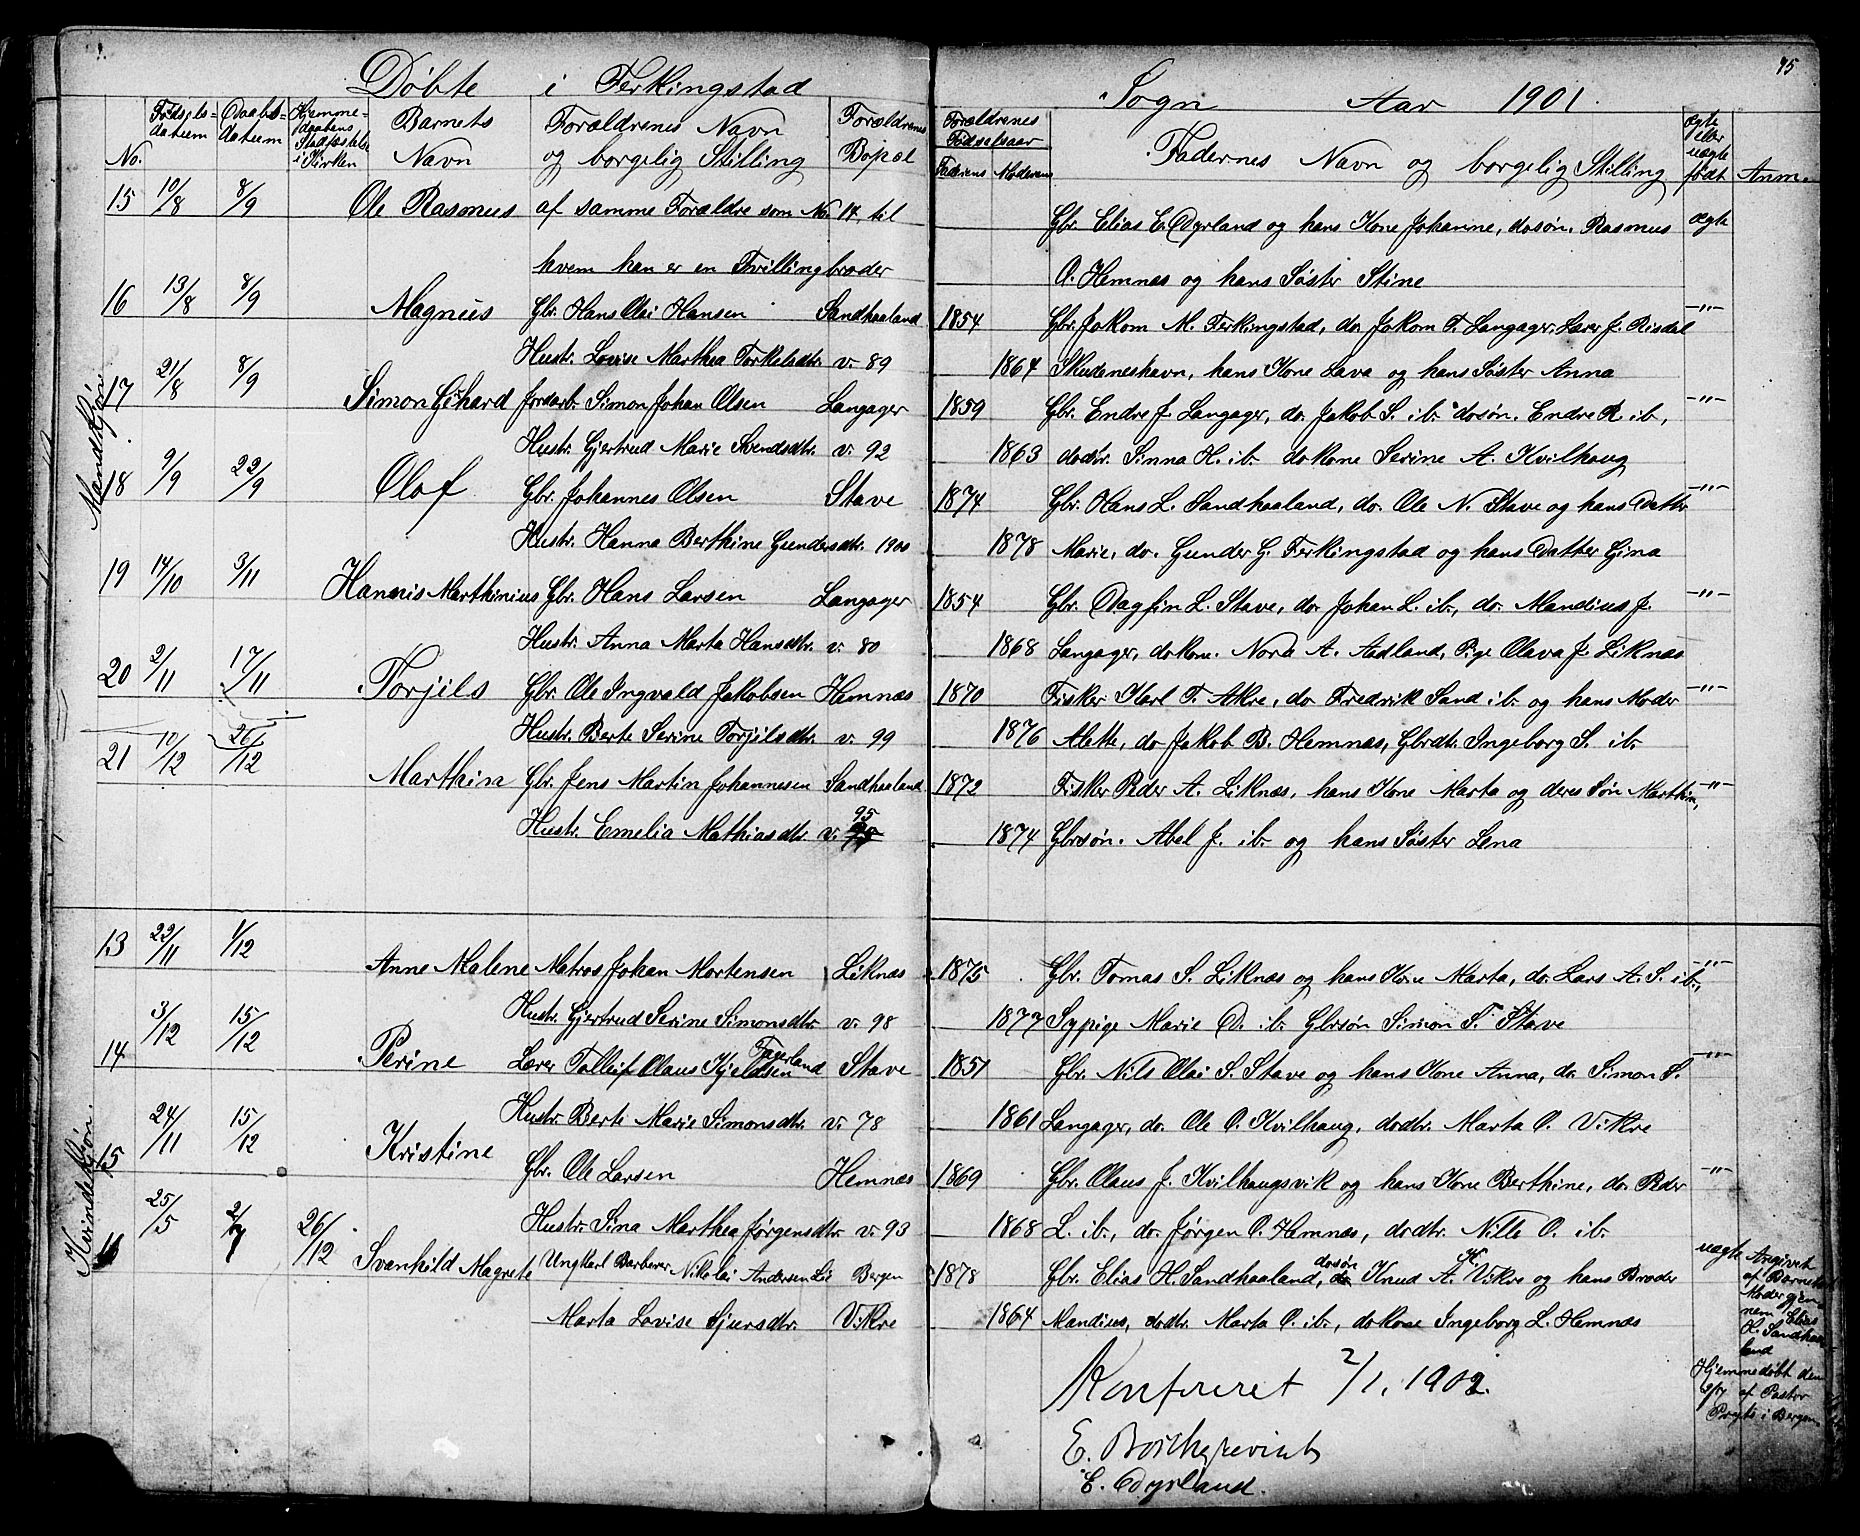 Døbte i Ferkingstad
Sogn Aar 1901.
45
No.
Fødsels-datum
Daabs-datum
Hjemmedaabens Stadfæstelse i Kirken
Barnets Navn
Forældrenes Navn og borgelig Stilling
Forældrenes Bopæl
Forældrenes Fødselsaar
Faderens Moderens
Faddernes Navn og borgelig Stilling
ægte eller uægte født
Anm.
Mandkjøn.
15 10/8 8/9 Ole Rasmus af samme Forældre som No 14 til Gbr. Elias E. Dyrland og hans Kone Johanne, dosøn. Rasmus ægte
hvem han er en Tvillingbroder O. Hemnes og hans Søster Stine
16 13/8 8/9 Magnus Gbr. Hans Olai Hansen Sandhaaland 1854 Gbr. Jakom M. Ferkingstad, do. Jakom T. Langager, Lærer J. Risdal -"-
Hustr. Lovise Marthea Torkelsdtr. v. 89 1864 Skudeneshavn, hans Kone Lava og hans Søster Anna
17 21/8 8/9 Simon Gihard Jordarb. Simon Johan Olsen Langager 1859 Gbr. Endre J. Langager, do. Jakob S. ib. dosøn. Endre R. ib, -"-
Hustr. Gjertrud Marie Svendsdtr. v. 92 1863 dodtr. Sinna H. ib. do Kone Serine A. Kvilhaug
18 9/9 22/9 Olaf Gbr. Johannes Olsen Stave 1874 Gbr. Hans L. Sandhaaland, do. Ole N. Stave og hans Datter -"-
Hustr. Hanna Berthine Gundersdtr. 1900 1878 Marie, do. Gunder G. Ferkingstad og hans Datter Gina
19 14/10 3/11 Hannis Marthinius Gbr. Hans Larsen Langager 1854 Gbr. Dagfin L. Stave, do. Johan L. ib., do. Mandius J. -"-
Hustr. Anna Marta Hansdtr. v. 80 1868 Langager, do Kone. Nora A. Aadland, Pige Olava J. Liknes
20 2/11 17/11 Torjils Gbr. Ole Ingvald Jakobsen Hemnes 1870 Fisker Karl T. Akre, do Fredrik Sand ib. og hans Moder -"-
Hustr. Berte Serine Torjilsdtr. v. 99 1876 Alette, do Jakob B. Hemnes, Gbrdt. Ingeborg S. ib.
21 10/12 26/12 Marthin Gbr. Jens Martin Johannesen Sandhaaland 1872 Fisker Peder A. Liknes, hans Kone Marta og deres Søn Marthin, -"-
Hustr. Emelia Mathiasdtr. v. 95 1874 Gbrsøn. Abel J. ib. og hans Søster Lena
Kvindekjøn.
13 22/11 1/12 Anne Malene Matros Johan Mortensen Liknes 1875 Gbr. Tomas S. Liknes og hans Kone Marta, do. Lars A. S. ib., -"-
Hustr. Gjertrud Serine Simonsdtr. v. 98 1877 Sypige Marie D. ib. Gbrsøn Simon S. Stave
14 3/12 15/12 Perine Lærer Tolleif Olaus Kjeldsen Fagerland Stave 1851 Gbr. Nils Olai S. Stave og hans Kone Anna, do. Simon S. -"-
Hustr. Berte Marie Simonsdtr. v. 78 1861 Langager, do. Ole O. Kvilhaug, dodtr. Marta O. Vikre
15 24/11 15/12 Kristine Gbr. Ole Larsen Hemnes 1869 Gbr. Olaus J. Kvilhaugsvik og hans Kone Berthine, do. Peder -"-
Hustr. Sina Marthea Jørgensdtr. v. 93 1868 L. ib., do. Jørgen O. Hemnes, dodtr. Nille O. ib.
16 25/5 2/7 26/12 Svanhild Magrete Ungkarl Barberer Nikolai Andersen Lie Bergen 1878 Gbr. Elias H. Sandhaaland, dosøn Knud A. K. Vikre og hans Broder uægte
Marta Lovise Sjursdtr. Vikre 1864 Mandius, dodtr. Marta O. ib., do Kone Ingeborg L. Hemnes
Angivet af Barnets Moder gjennem Elias H. Sandhaaland
Hjemmedøbt den 2/7 af Pastor i Bergen
Konfereret 2/1. 1902.
E. Borchgrevink
E. Dyrland.